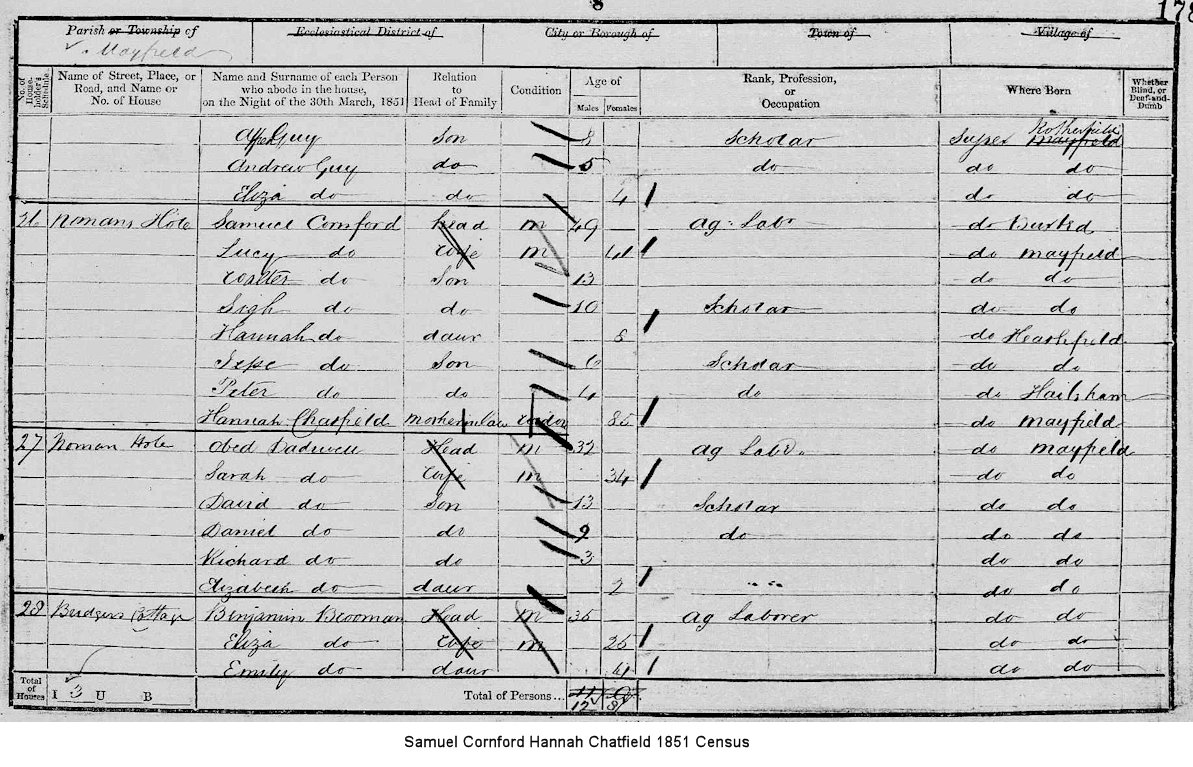 8
178
Parish or Township of Ecclesiastical District of City or Borough of Town of Village of
Mayfield
No. of House-holder's Schedule Name of Street, Place, or Road, and Name or No. of House Name and Surname of each Person who abode in the house, on the Night of the 30th March, 1851 Relation to Head of Family Condition Age of Males Females Rank, Profession, or Occupation Where Born Whether Blind, or Deaf-and-Dumb
Guy Son 8 Scholar Sussex Rotherfield Mayfield
Andrew Guy do 5 do do do
Eliza do do 4 do do
26 Nomans Hole Samuel Cornford head m 49 Ag Labr do
Lucy do Wife m 41 do Mayfield
Walter do Son 13 do do
do do 10 Scholar do do
Hannah do daur 8 do Heathfield
do Son 6 Scholar do do
Peter do do 4 do do Hailsham
Hannah Chatfield motherinlaw 85 do Mayfield
27 Noman Hole Obed Head m 32 Ag Labr do Mayfield
Sarah do Wife m 34 do do
David do Son 13 Scholar do do
Daniel do do 9 do do do
Richard do do 3 do do
Elizabeth do daur 2 do do
28 Cottage Benjamin Blooman Head m 35 Ag Laborer do do
Eliza do Wife m 25 do do
Emily do daur 4 do do
Total of Houses I 3 U B Total of Persons...
Samuel Cornford Hannah Chatfield 1851 Census